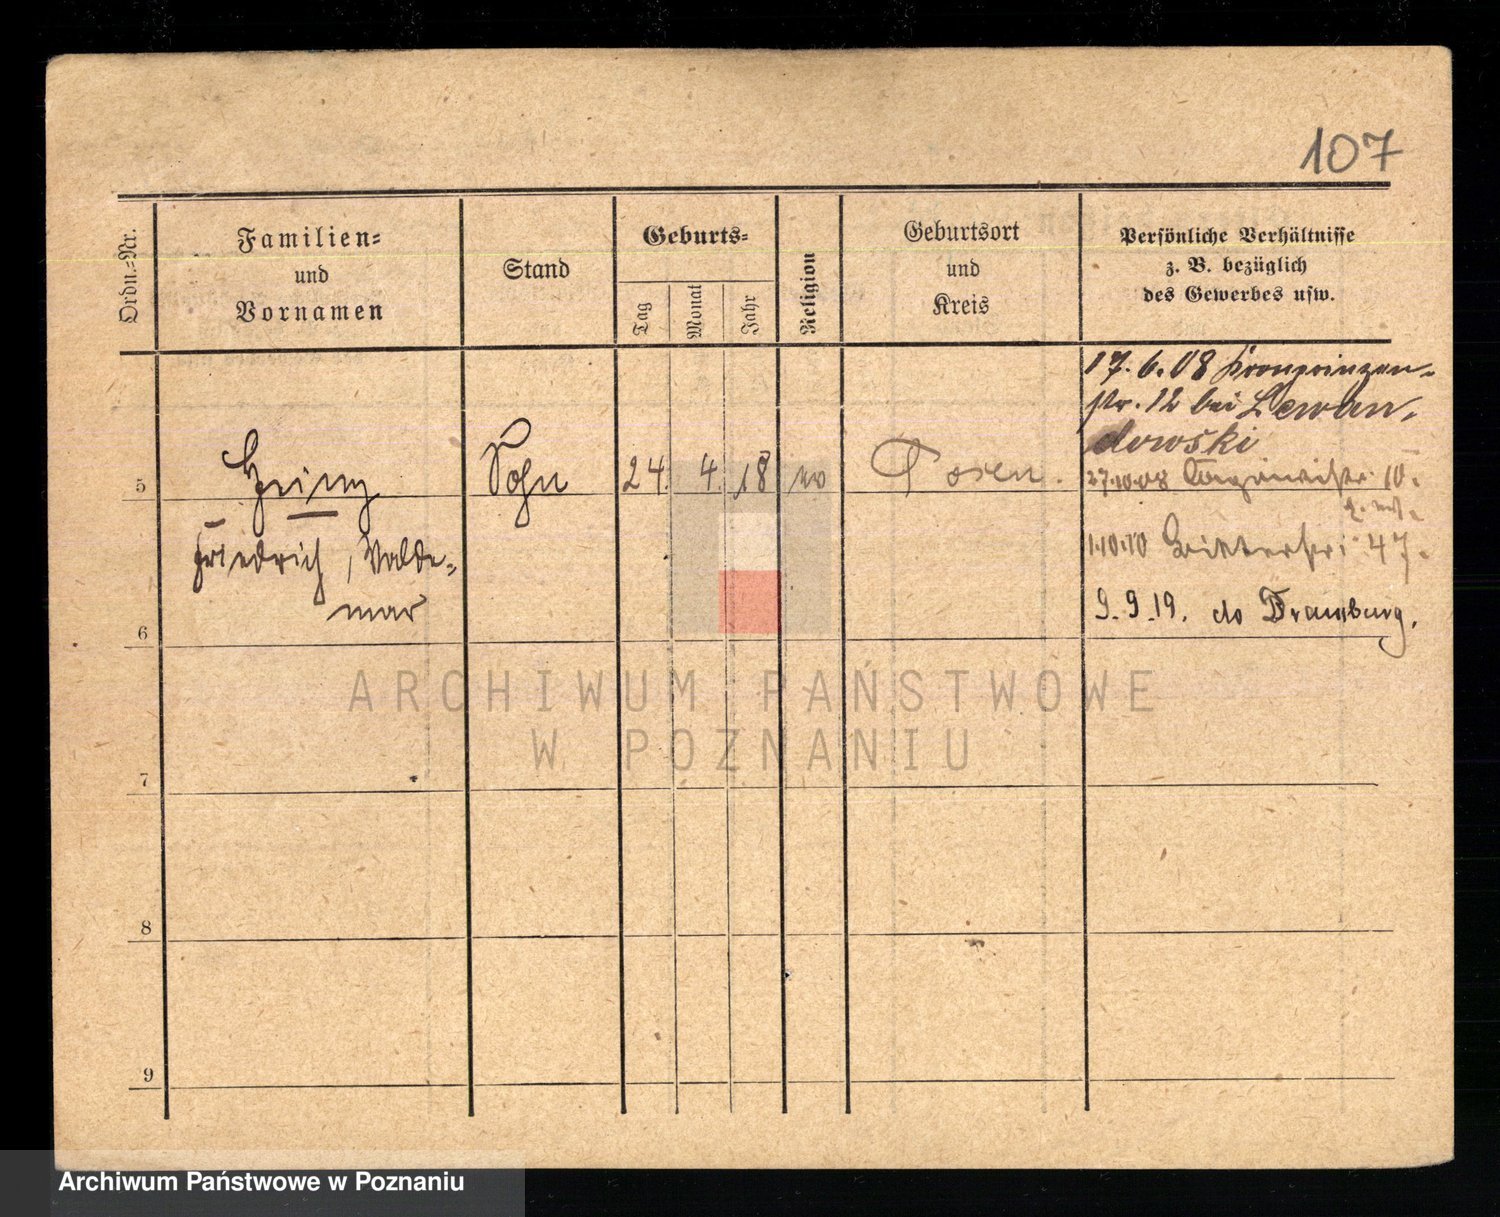 107
Ordn.-Nr.
Familien-
und
Vornamen
Stand
Geburts-
Tag
Monat
Jahr
Religion
Geburtsort
und
Kreis
Persönliche Verhältnisse
z. B. bezüglich
des Gewerbes usw.
17.6.08 Kronprinzen-
str. 12 bei Lewan-
dowski
5
Heinz
Sohn
24. 4. 18
Posen.
27.10.08 10.
Friedrich, Valde-
mar
1.10.10 47.
9.9.19. do Dramburg.
6
ARCHIWUM PAŃSTWOWE
W POZNANIU
7
8
9
Archiwum Państwowe w Poznaniu